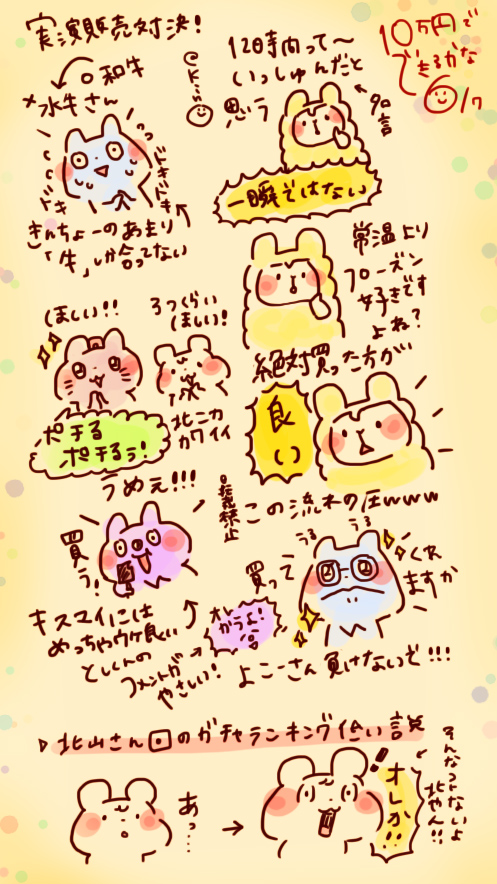 実演販売対決!
10万円で
できるかな
1/7
@Kin
○和牛
×水牛さん
ドキ
ドキドキ
きんちょーのあまり
「牛」しか合ってない
12時間って〜
いっしゅんだと
思う
名言
一瞬ではない
常温より
フローズン
好きです
よね?
絶対買った方が
良い
ほしい!!
3つくらい
ほしい!
北ニカ
カワイイ
ポチる
ポチるぅ!
うめぇ!!!
買う!
キスマイには
めっちゃウケ良い
としくんの
コメントが
やさしい!
オレ
かうよ!
この流れの圧www
うる
うる
買って
くれ
ますか
よこーさん負けないで!!!
▷北山さん回のガチャランキング低い説
あっ…
オレか!!
そんなことないよ
北やん!!